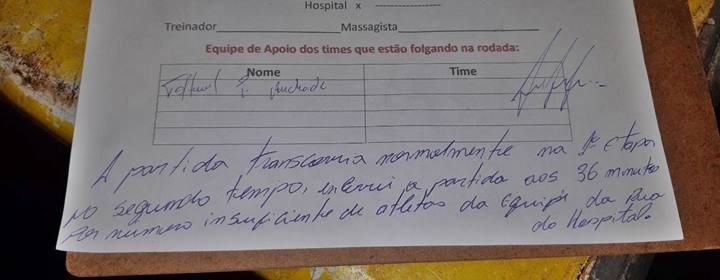 Hospital x ------------------
Treinador____________________Massagista______________________
Equipe de Apoio dos times que estão folgando na rodada:
Nome Time
Andrade
A partida transcorria normalmente na 1ª Etapa
no segundo tempo, a partida aos 36 minutos
por numero insuficiente de atletas da Equipe da Rua
do Hospital.